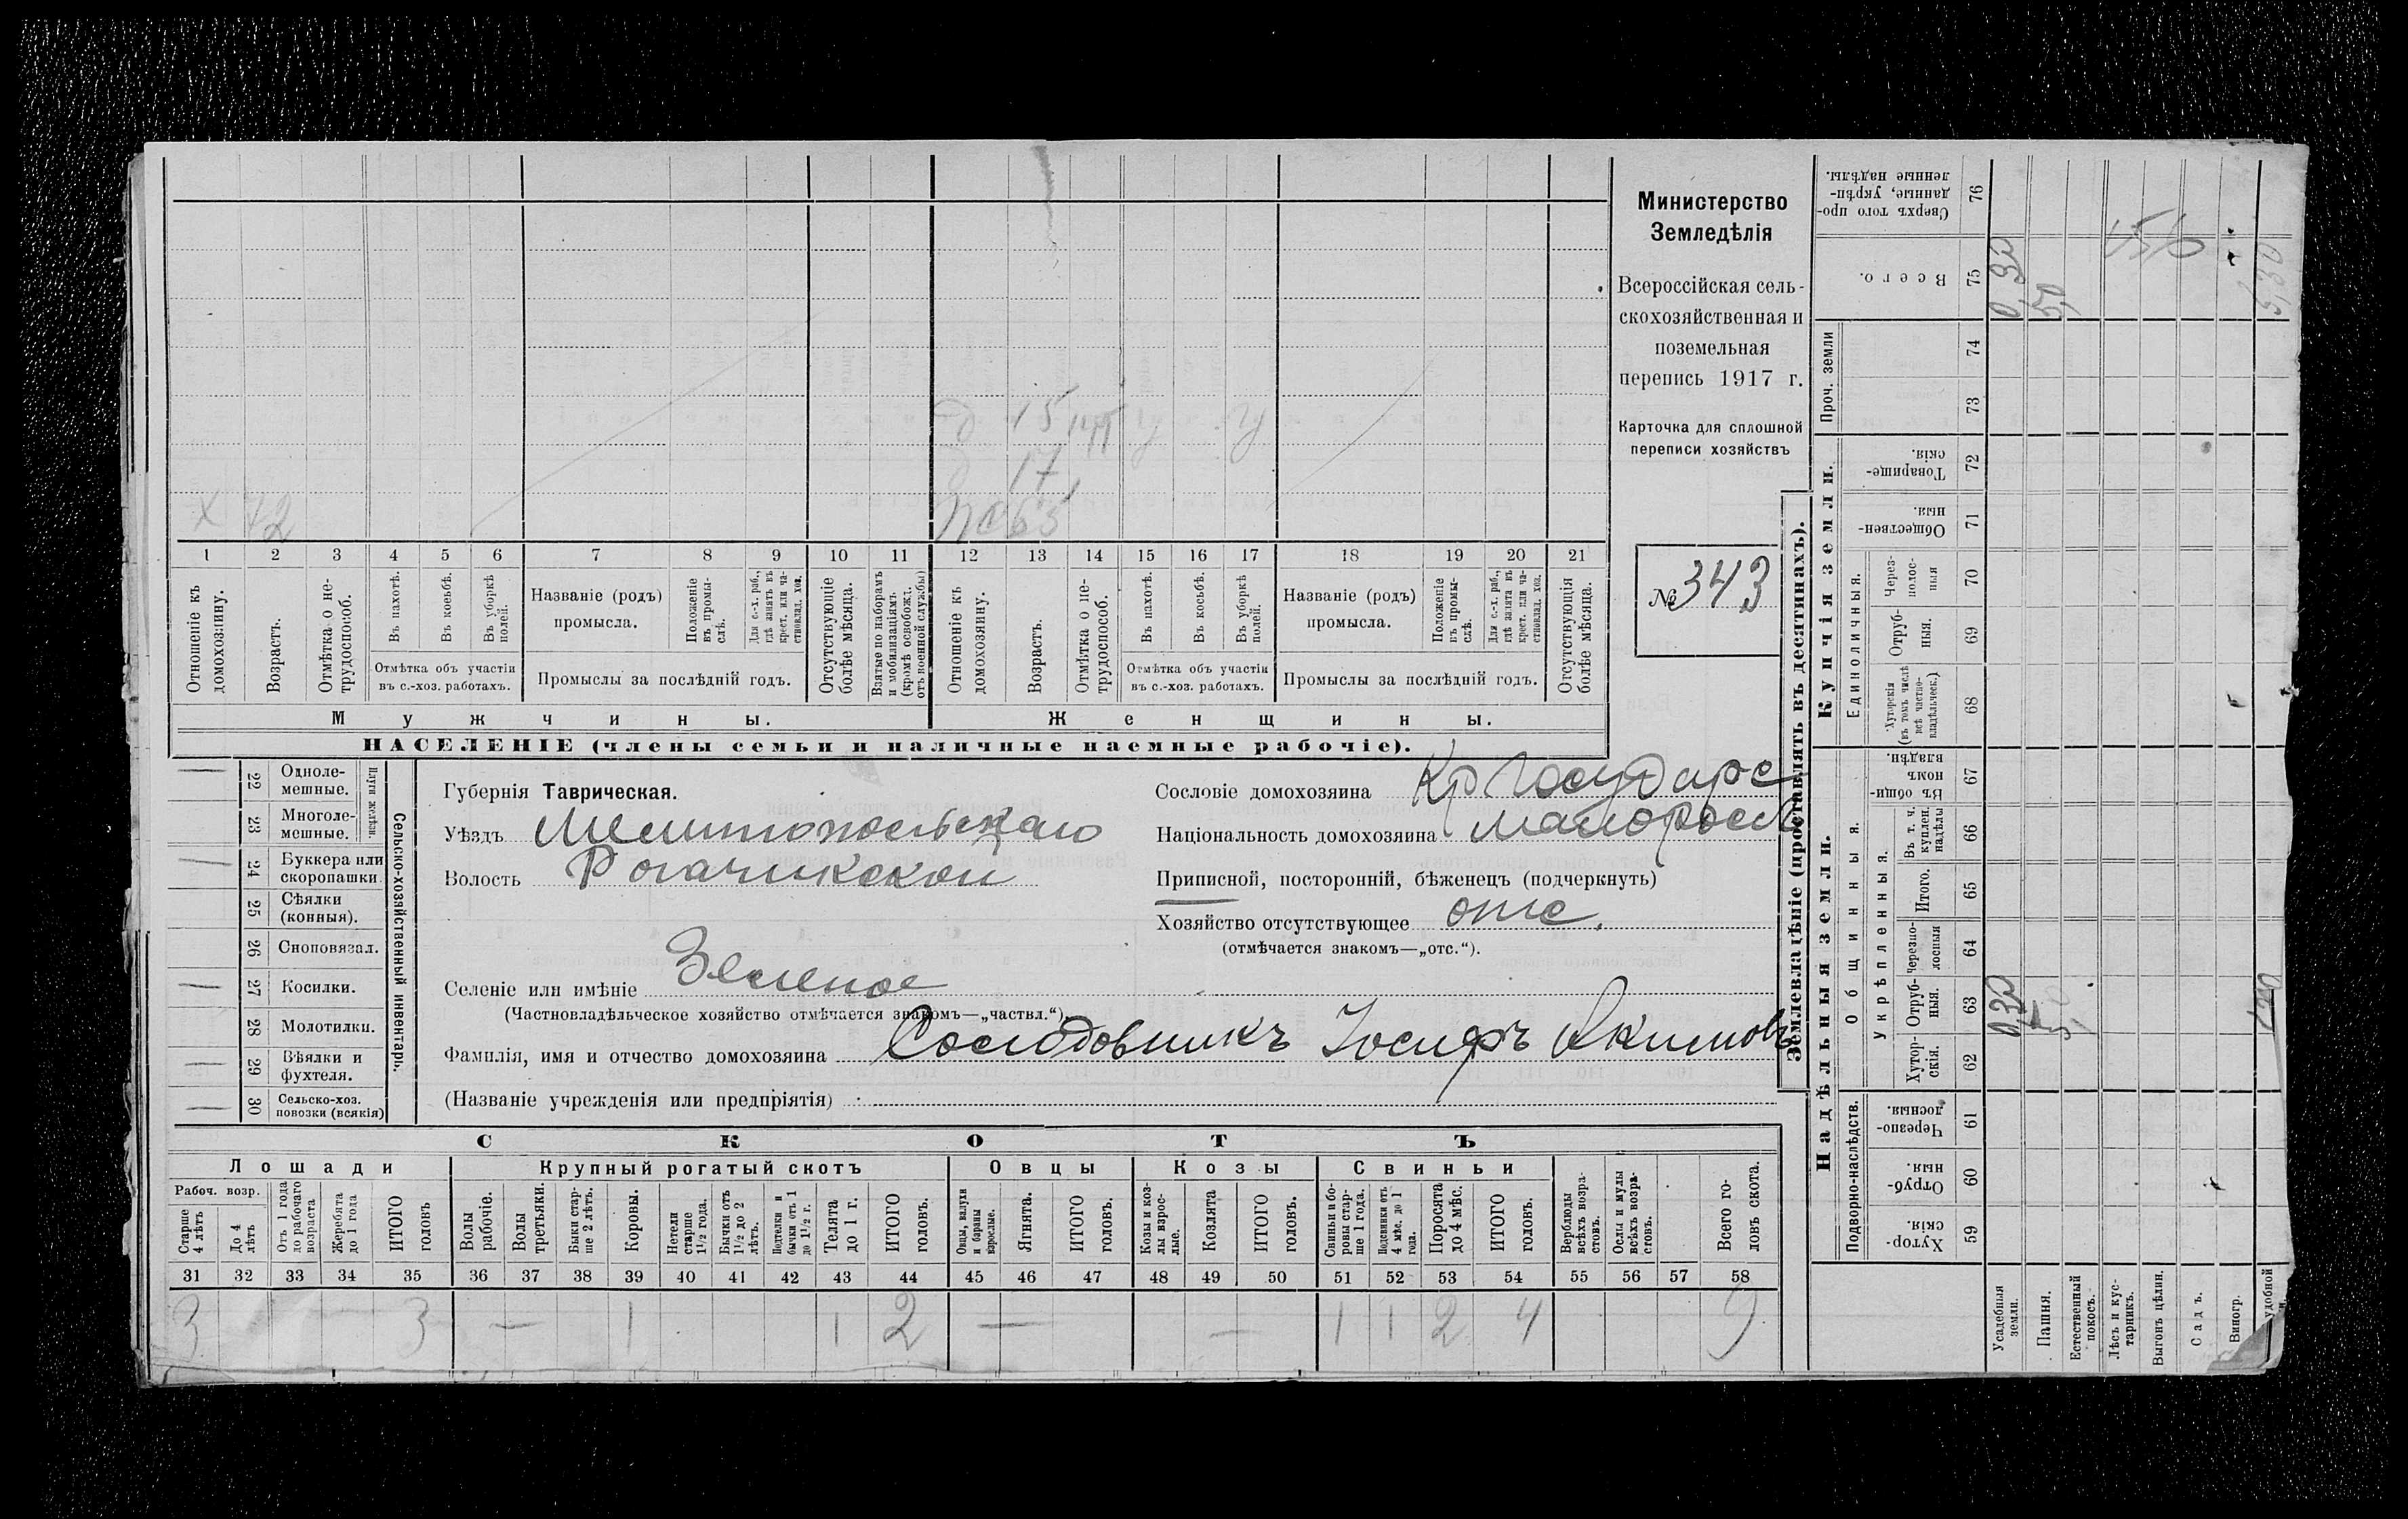 д 15 1/4 У У
д 17
х 42 жа 65
1 2 3 4 5 6 7 8 9 10 11 12 13 14 15 16 17 18 19 20 21
Отношеніе къ домохозяину.
Возрастъ.
Отмѣтка о нетрудоспособ.
Въ пахотѣ.
Въ косьбѣ.
Въ уборкѣ полей.
Отмѣтка объ участіи
въ с.-хоз. работахъ.
Названіе (родъ)
промысла.
Положеніе въ промыслѣ.
Для с.-х. раб., гдѣ занятъ въ крест. или частновлад. хоз.
Промыслы за послѣдній годъ.
Отсутствующіе болѣе мѣсяца.
Взятые по наборамъ и мобилизаціямъ (кромѣ освобожд. отъ военной службы)
Отношеніе къ домохозяину.
Возрастъ.
Отмѣтка о нетрудоспособ.
Въ пахотѣ.
Въ косьбѣ.
Въ уборкѣ полей.
Отмѣтка объ участіи
въ с.-хоз. работахъ.
Названіе (родъ)
промысла.
Положеніе въ промыслѣ.
Для с.-х. раб., гдѣ занята въ крест. или частновлад. хоз.
Промыслы за послѣдній годъ.
Отсутствующія болѣе мѣсяца.
Мужчины. Женщины.
НАСЕЛЕНІЕ (члены семьи и наличные наемные рабочіе).
Министерство
Земледѣлія
Всероссійская сель-
скохозяйственная и
поземельная
перепись 1917 г.
Карточка для сплошной
переписи хозяйствъ
№ 343
22 Одноле-
мешные.
23 Многоле-
мешные.
24 Буккера или
скоропашки.
25 Сѣялки
(конныя).
26 Сноповязал.
27 Косилки.
28 Молотилки.
29 Вѣялки и
фухтеля.
30 Сельско-хоз.
повозки (всякія)
Сельско-хозяйственный инвентарь.
Губернія Таврическая.
Уѣздъ Мелитопольскаго
Волость Рогачикской
Селеніе или имѣніе Зеленое
(Частновладѣльческое хозяйство отмѣчается знакомъ—„частвл.“)
Фамилія, имя и отчество домохозяина Солодовникъ Іосифъ Акимовъ
(Названіе учрежденія или предпріятія)
Сословіе домохозяина Кр Государс
Національность домохозяина малоросс
Приписной, посторонній, бѣженецъ (подчеркнуть)
Хозяйство отсутствующее отс.
(отмѣчается знакомъ—„отс.“).
СКОТЪ
Лошади Крупный рогатый скотъ Овцы Козы Свиньи
Рабоч. возр.
Старше 4 лѣтъ
До 4 лѣтъ
Отъ 1 года до рабочаго возраста
Жеребята до 1 года
ИТОГО головъ
Волы рабочіе.
Волы третьяки.
Быки старше 2 лѣтъ.
Коровы.
Нетели старше 1½ года.
Бычки отъ 1½ до 2 лѣтъ.
Подтелки и бычки отъ 1 до 1½ г.
Телята до 1 г.
ИТОГО головъ.
Овцы, валухи и бараны взрослые.
Ягнята.
ИТОГО головъ.
Козы и козлы взрослые.
Козлята
ИТОГО головъ.
Свиньи и боровы старше 1 года.
Подсвинки отъ 4 мѣс. до 1 года.
Поросята до 4 мѣс.
ИТОГО головъ.
Верблюды всѣхъ возрастовъ.
Ослы и мулы всѣхъ возрастовъ.
Всего головъ скота.
31 32 33 34 35 36 37 38 39 40 41 42 43 44 45 46 47 48 49 50 51 52 53 54 55 56 57 58
3 — 3 — 1 1 2 — — 1 1 2 4 9
Землевладѣніе (проставлять въ десятинахъ).
Надѣльныя земли. Купчія земли. Проч. земли
Подворно-наслѣдств. Общинныя. Единоличныя.
Укрѣпленныя.
Хуторскія. 59
Отрубныя. 60
Черезполосныя. 61
Хуторскія. 62
Отрубныя. 63
Черезполосныя 64
Итого. 65
Въ т. ч. куплен. надѣлы 66
Въ общинномъ владѣн. 67
Хуторскія (въ томъ числѣ всѣ частновладѣльческ.) 68
Отрубныя. 69
Черезполосныя 70
Общественныя. 71
Товарищескія. 72
73
74
Всего. 75
Сверхъ того проданные, укрѣпленные надѣлы. 76
Усадебныя земли. 0,30 0,30
Пашня. 5,0 5,0
Естественный покосъ.
Лѣсъ и кустарникъ.
Выгонъ цѣлин.
Садъ.
Виногр.
удобной
5,30